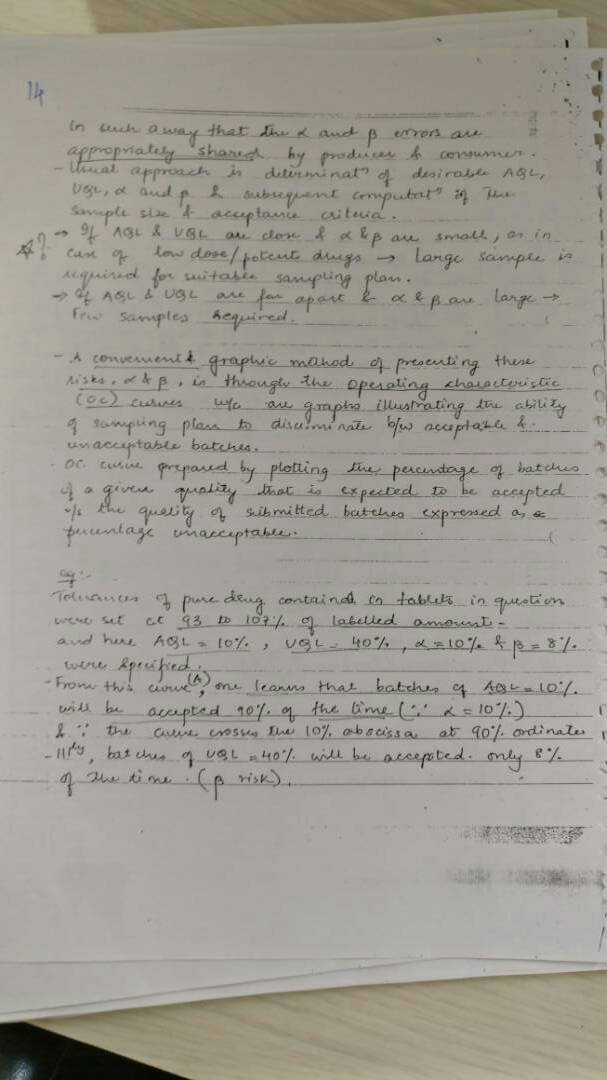 14
in such a way that the α and β errors are
appropriately shared by producer & consumer.
- Usual approach is determinatⁿ of desirable AQL,
UQL, α and β & subsequent computatⁿ of the
sample size & acceptance criteria.
→ If AQL & UQL are close & α & β are small, as in
case of low dose/potent drugs → large sample is
required for suitable sampling plan.
→ If AQL & UQL are far apart & α & β are large →
Few samples required.
- A convenient & graphic method of presenting these
risks, α & β, is through the operating characteristic
(OC) curves w/c are graphs illustrating the ability
of sampling plans to discriminate b/w acceptable &
unacceptable batches.
- OC curve prepared by plotting the percentage of batches
of a given quality that is expected to be accepted
v/s the quality of submitted batches expressed as a
percentage unacceptable.
eg:-
Tolerances of pure drug contained in tablets in question
were set at 93 to 107% of labelled amount-
and here AQL = 10%, UQL = 40%, α = 10% & β = 8%
were specified.
- From this curve (A), one learns that batches of AQL = 10%
will be accepted 90% of the time (∵ α = 10%)
& ∵ the curve crosses the 10% abscissa at 90% ordinates
- |||ly, batches of UQL = 40% will be accepted only 8%
of the time. (β risk).